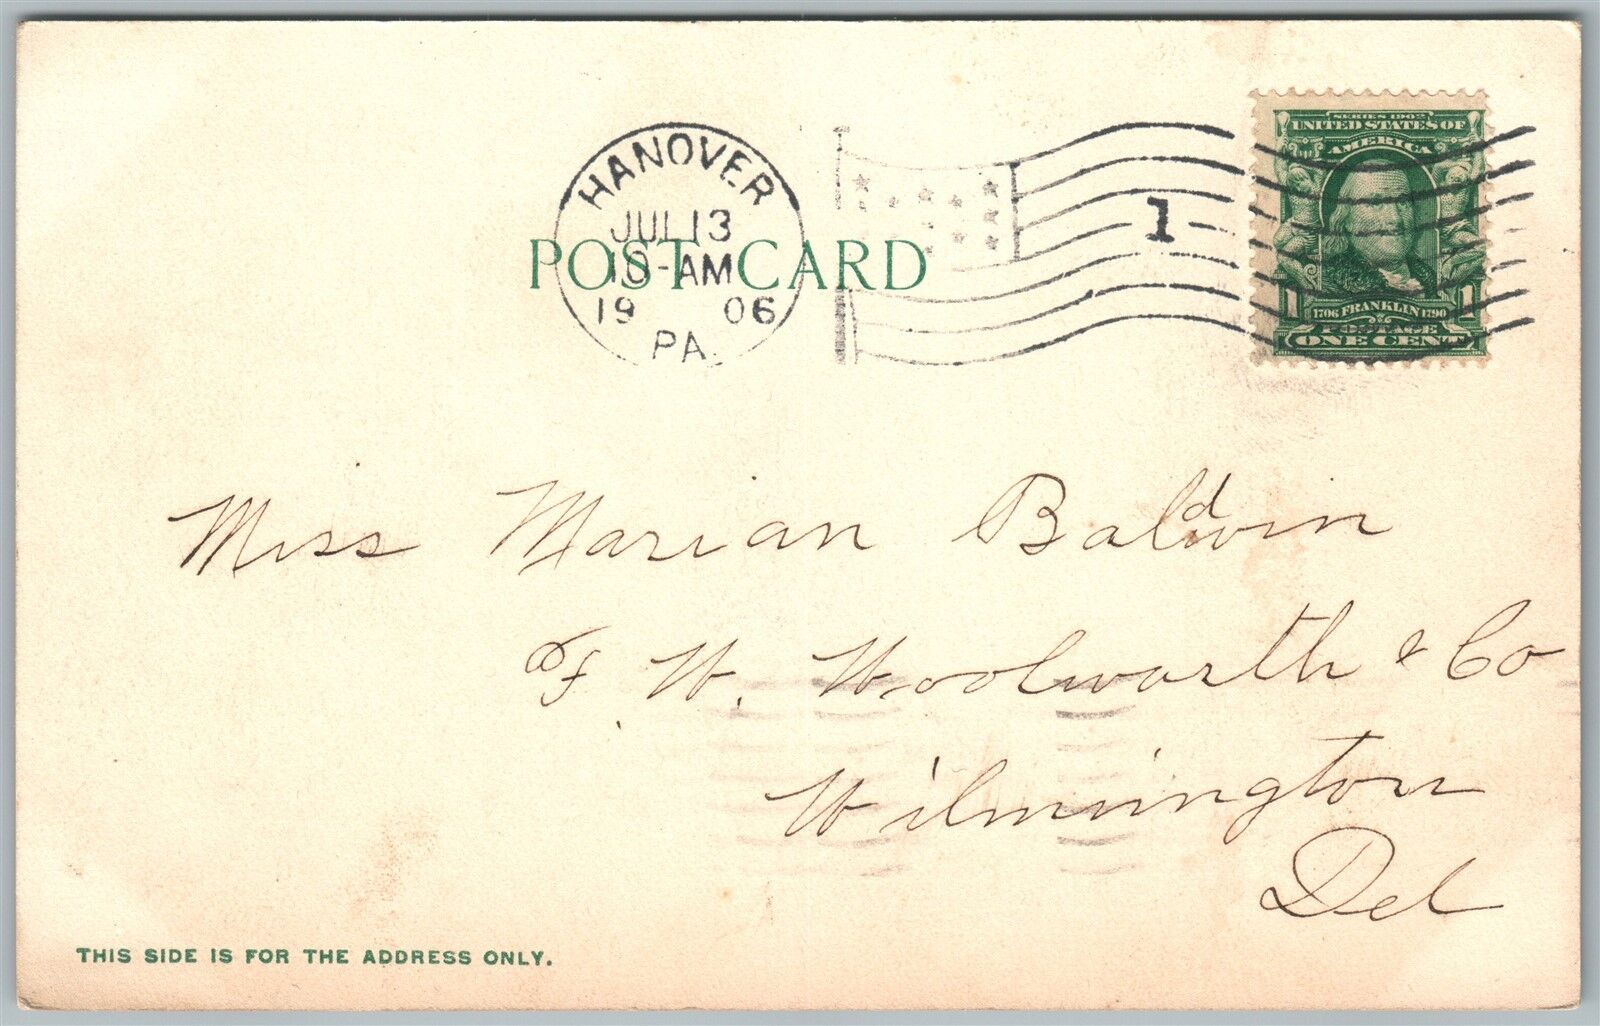 HANOVER
JUL 13
10-AM
19 06
PA.
1
SERIES 1902
UNITED STATES OF
AMERICA
1 1706 FRANKLIN 1790 1
POSTAGE
ONE CENT
POST CARD
Miss Marian Baldwin
F. W. Woolworth & Co
Wilmington
Del
THIS SIDE IS FOR THE ADDRESS ONLY.